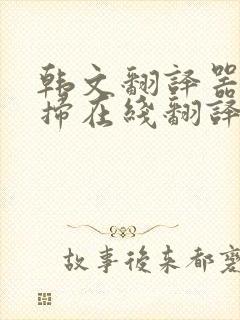 韩文翻譯器
掃在綫翻譯
故事後来都